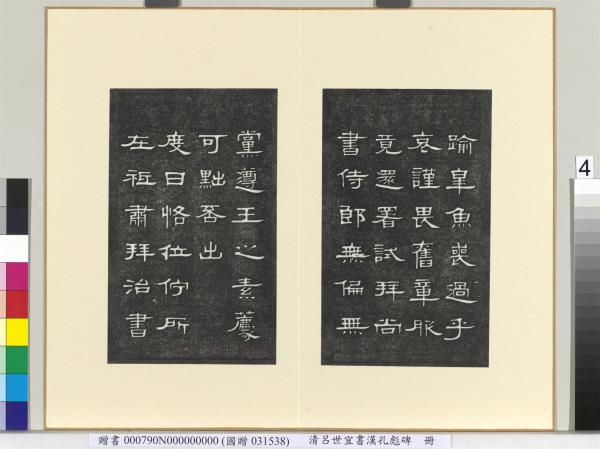 踰皐魚喪過乎
哀謹畏舊章服
竟還署試拜尚
書侍郎無偏無
黨遵王之素薦
可黜否出
度日恪位佇所
左祗肅拜治書
4
贈書 000790N000000000 (國贈 031538) 清呂世宜書漢孔彪碑 冊